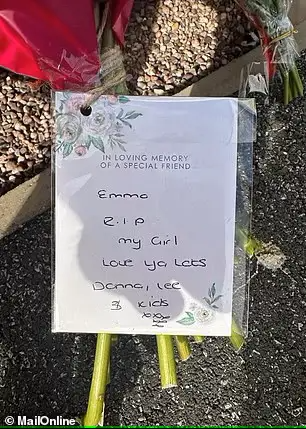 IN LOVING MEMORY
OF A SPECIAL FRIEND
Emma
R.I.P
my Girl
Love ya Lots
Donna, Lee
& kids
xxx
© MailOnline